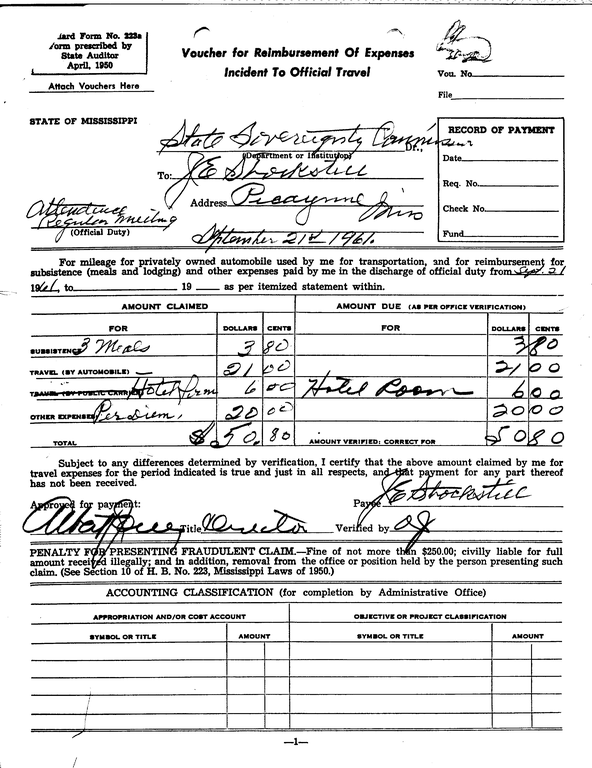 dard Form No. 223a
Form prescribed by
State Auditor
April, 1950
Attach Vouchers Here
Voucher for Reimbursement Of Expenses
Incident To Official Travel
Vou. No.
File
STATE OF MISSISSIPPI
State Sovereignty Commission
Dr.,
(Department or Institution)
To: J E Stockstill
Address Picayune Miss
Attendence
Regular Meeting
(Official Duty)
September 21st 1961.
RECORD OF PAYMENT
Date
Req. No.
Check No.
Fund
For mileage for privately owned automobile used by me for transportation, and for reimbursement for
subsistence (meals and lodging) and other expenses paid by me in the discharge of official duty from Sept. 21
1961, to 19 as per itemized statement within.
AMOUNT CLAIMED AMOUNT DUE (AS PER OFFICE VERIFICATION)
FOR DOLLARS CENTS FOR DOLLARS CENTS
SUBSISTENCE 3 Meals 3 80 3 80
TRAVEL (BY AUTOMOBILE) — 21 00 21 00
TRAVEL (BY PUBLIC CARRIER) Hotel Room 6 00 Hotel Room 6 00
OTHER EXPENSES Per Diem, 20 00 20 00
TOTAL $ 50. 80 AMOUNT VERIFIED: CORRECT FOR 50 80
Subject to any differences determined by verification, I certify that the above amount claimed by me for
travel expenses for the period indicated is true and just in all respects, and that payment for any part thereof
has not been received.
Approved for payment: Payee J E Stockstill
Title Director Verified by
PENALTY FOR PRESENTING FRAUDULENT CLAIM.—Fine of not more than $250.00; civilly liable for full
amount received illegally; and in addition, removal from the office or position held by the person presenting such
claim. (See Section 10 of H. B. No. 223, Mississippi Laws of 1950.)
ACCOUNTING CLASSIFICATION (for completion by Administrative Office)
APPROPRIATION AND/OR COST ACCOUNT OBJECTIVE OR PROJECT CLASSIFICATION
SYMBOL OR TITLE AMOUNT SYMBOL OR TITLE AMOUNT
—1—